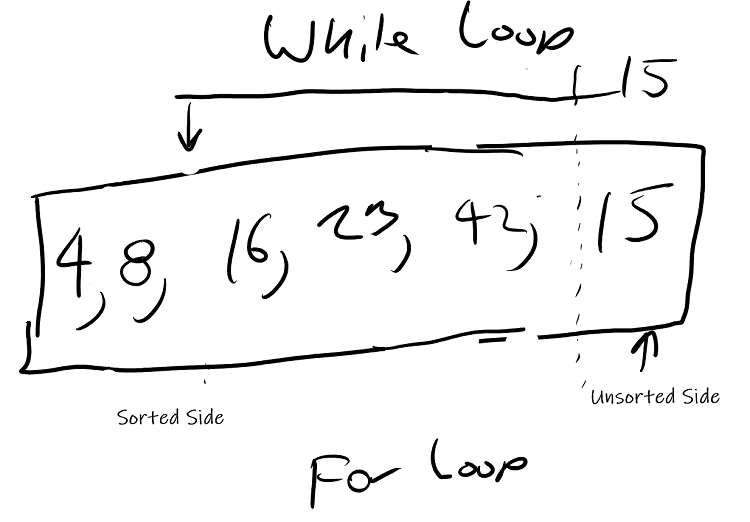 While Loop
15
4, 8, 16, 23, 42, 15
Sorted Side
Unsorted Side
For Loop